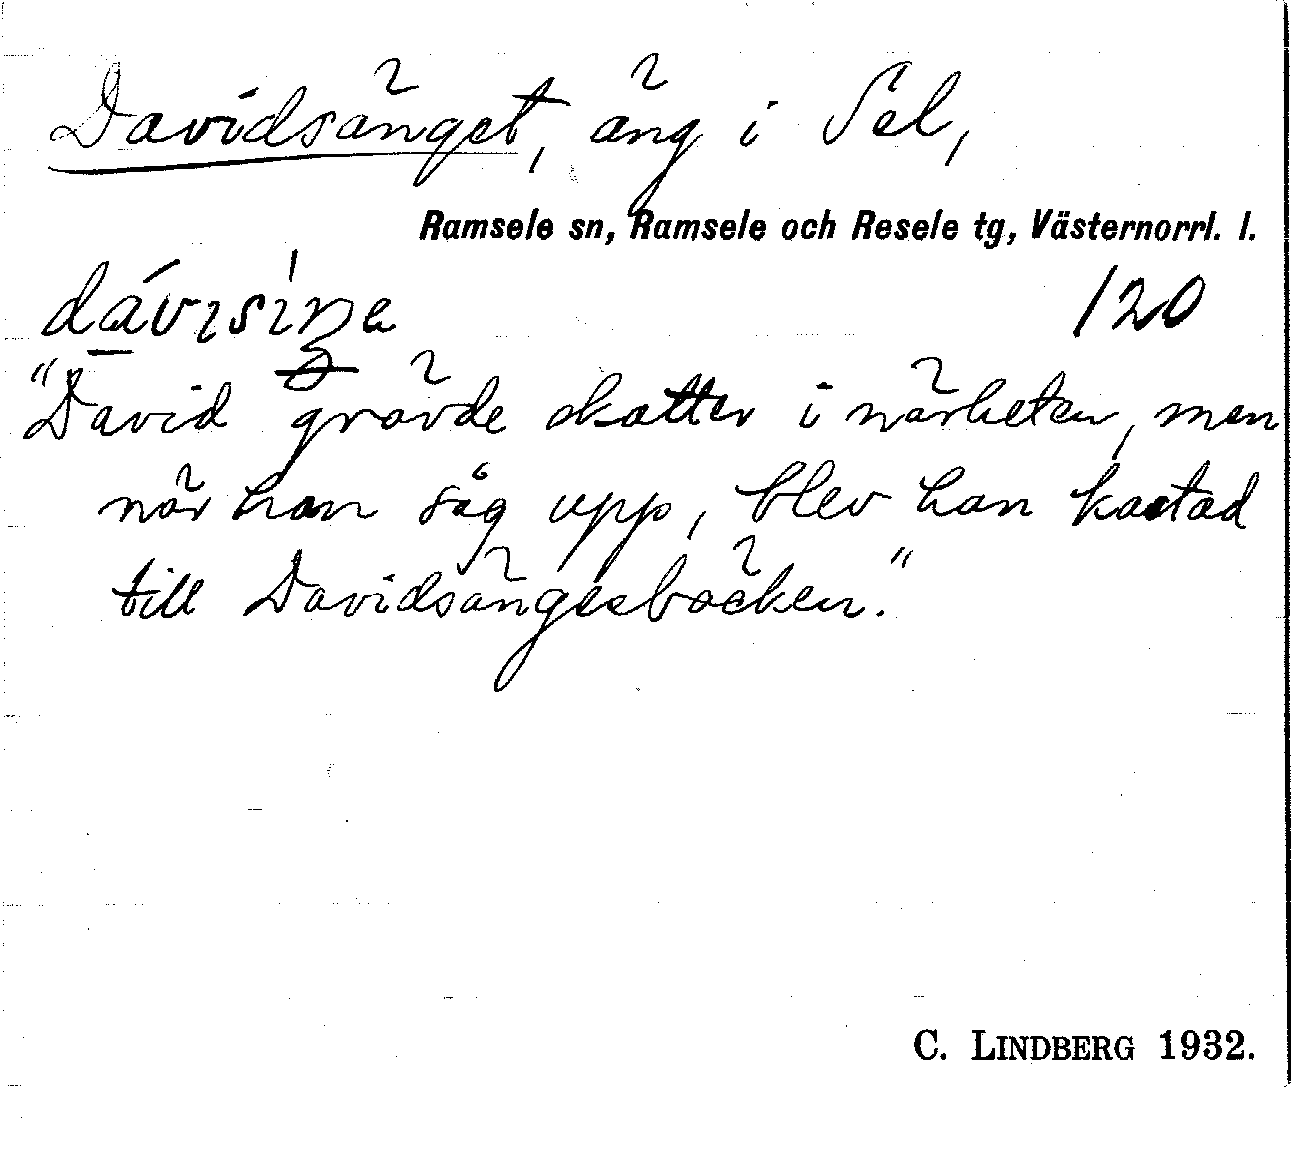 Davidsänget, äng i Sel,
Ramsele sn, Ramsele och Resele tg, Västernorrl. l.
120
"David grävde skatter i närheten, men
när han såg upp, blev han kastad
till Davidsängesbäcken."
C. LINDBERG 1932.